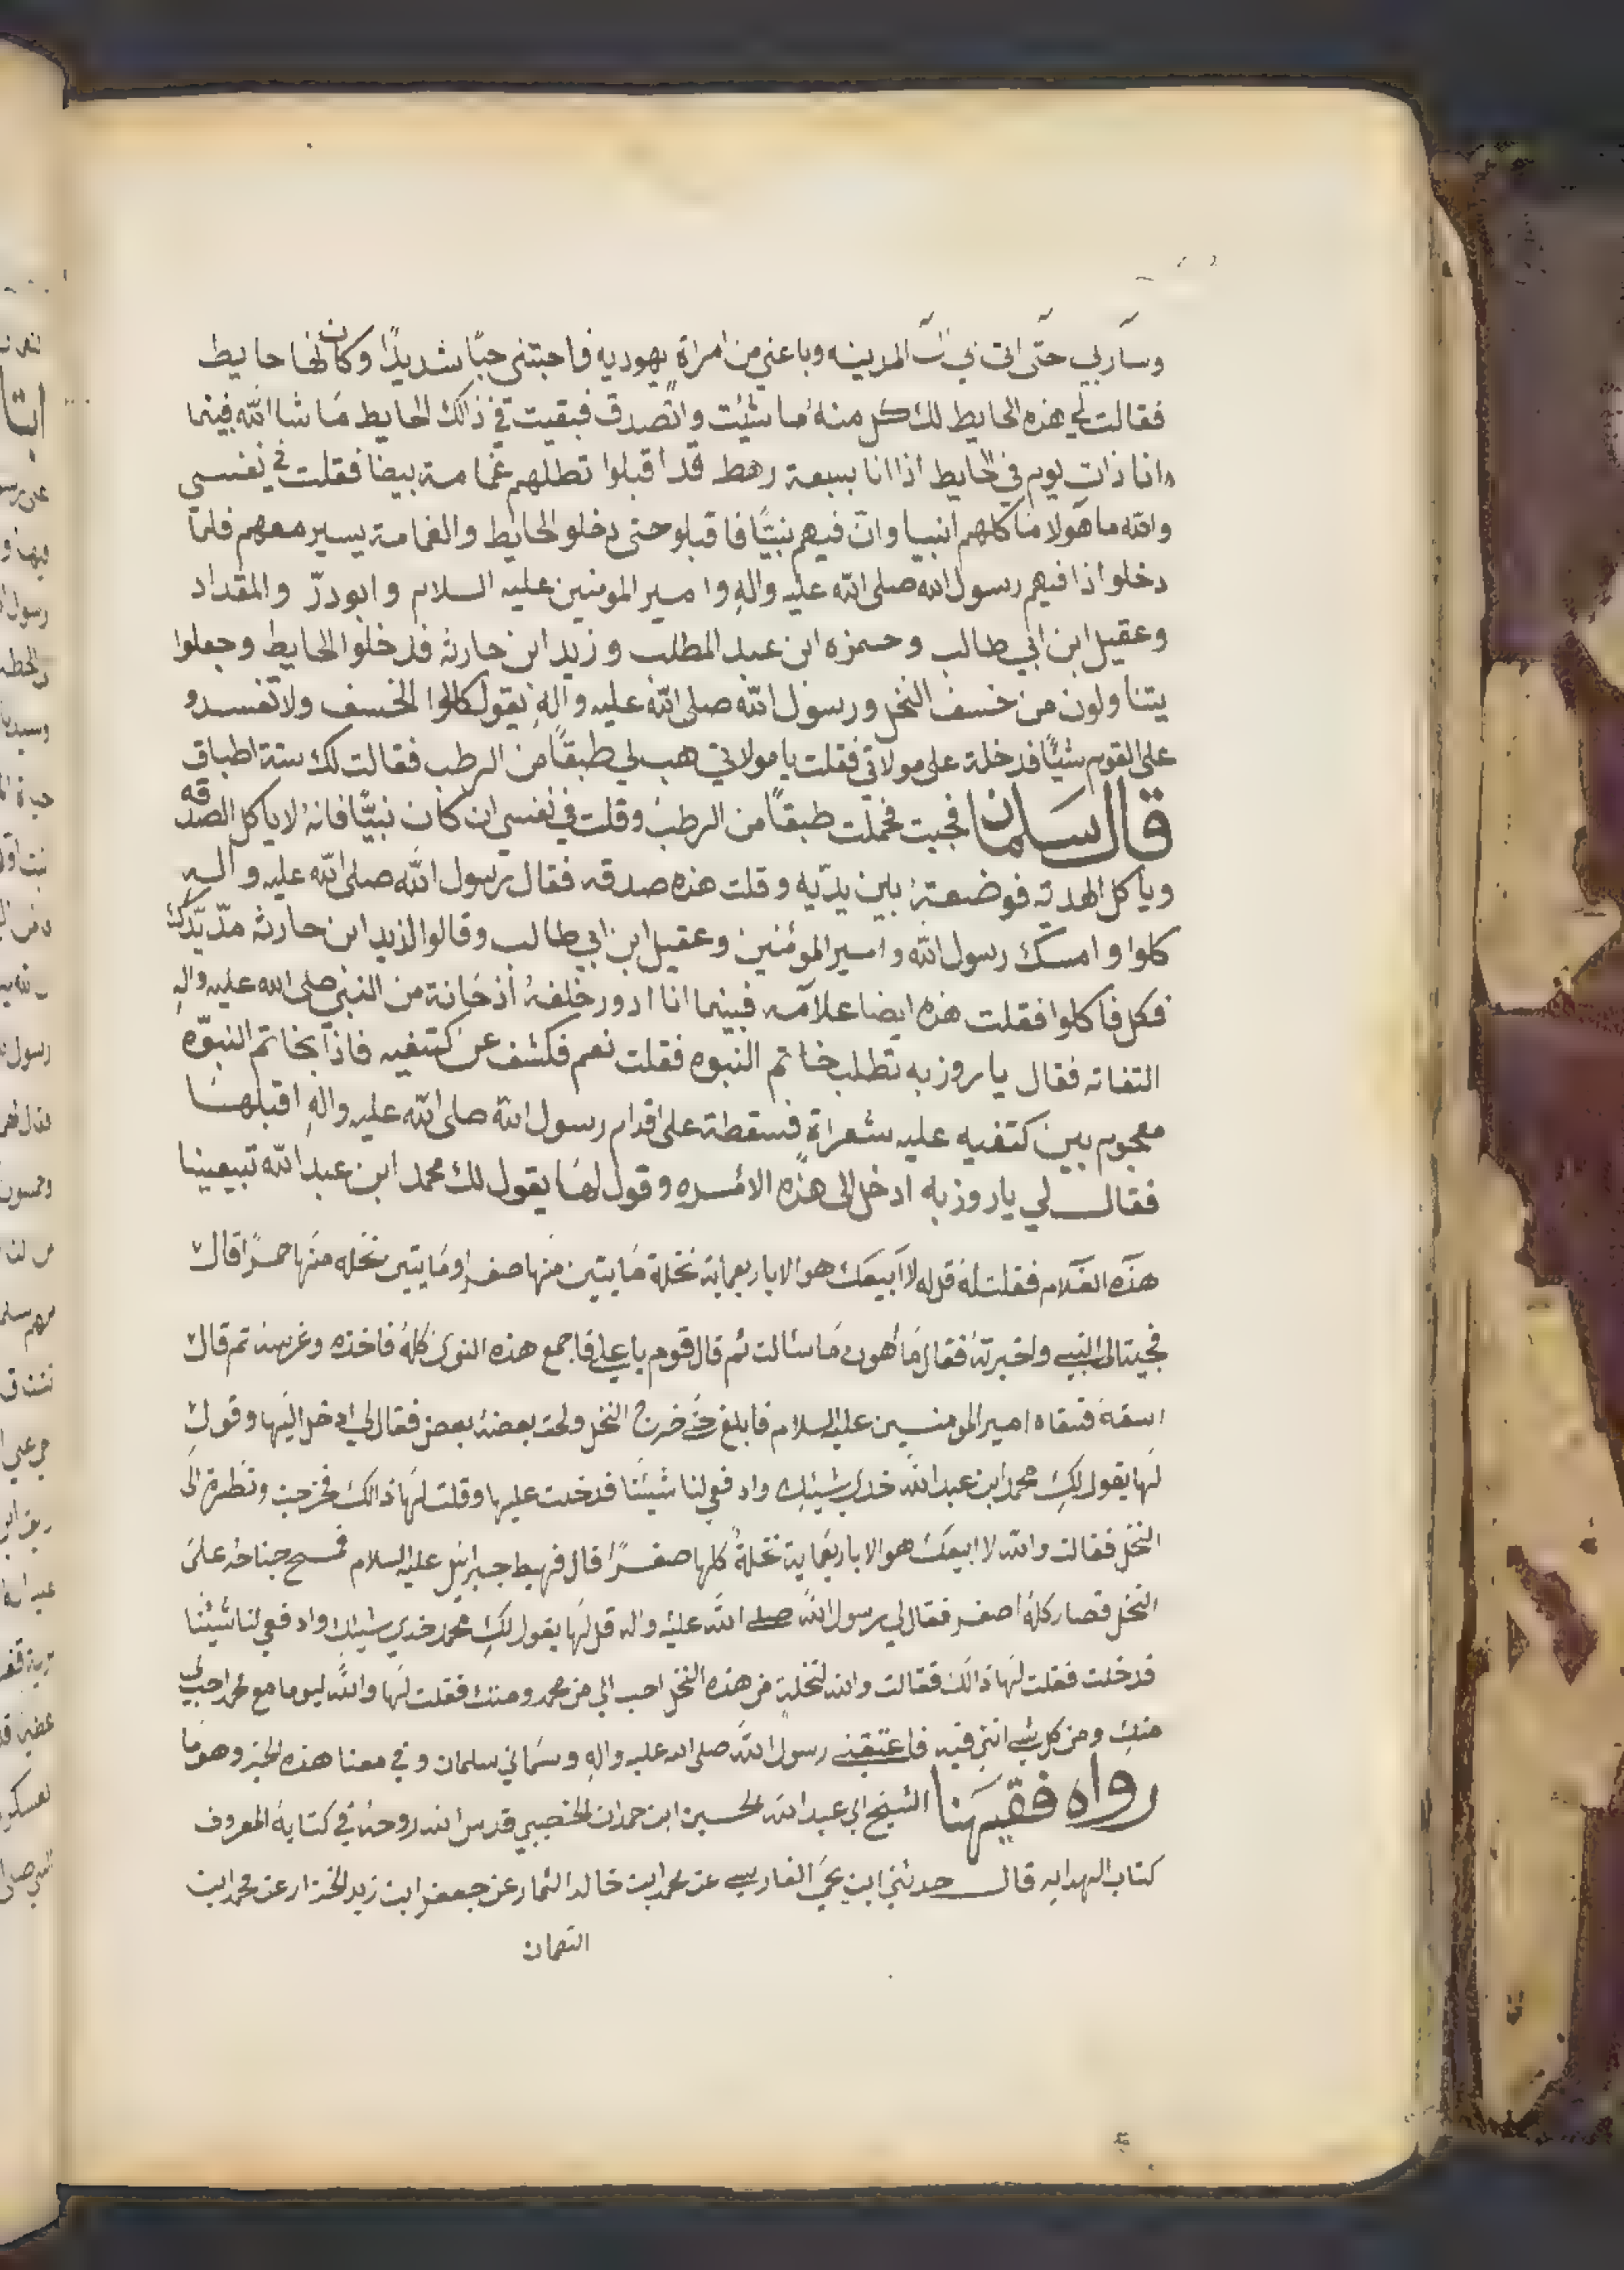 وسار بي حتى اتى بي الى المدينه وباعني من امراة يهوديه فاحبتني حبًا شديدًا وكان لها حايط
فقالت لي هذه الحايط لك كل منه ما شيئت واتصدق فبقيت في ذالك الحايط ما شا الله فبينما
وانا ذات يوم في الحايط اذا انا بسبعة رهط قد اقبلوا تظلهم غمامة بيضا فقلت في نفسي
والله ما هولا منا كلهم انبيا وان فيهم نبيًا فاقبلو حتى دخلو الحايط والغمامة يسير معهم فلما
دخلوا اذا فيهم رسول الله صلى الله عليه واله وامير المومنين عليه السلام وابو ذر والمقداد
وعقيل ابن ابي طالب وحمزه ابن عبد المطلب وزيد ابن حارثه فدخلوا الحايط وجعلوا
يتناولون من خسف النخل ورسول الله صلى الله عليه واله يقول كالوا الخسف ولا تفسدو
على القوم شيئًا فدخلة على مولاتي فقلت يا مولاتي هب لي طبقًا من الرطب فقالت لك ستة اطباق
قال سلمان فجيت فحملت طبقًا من الرطب وقلت في نفسي ان كان نبيًا فانه لا ياكل الصدقه
وياكل الهدية فوضعته بين يديه وقلت هذه صدقه فقال رسول الله صلى الله عليه واله
كلوا وامسك رسول الله وامير المؤمنين وعقيل ابن ابي طالب وقالوا لزيد ابن حارثه مد يدك
فكل فاكلوا فقلت هذه ايضا علامه فبينما انا ادور خلفه اذ حانة من النبي صلى الله عليه واله
التفاته فقال يا روزبه تطلب خاتم النبوه فقلت نعم فكشف عن كتفيه فاذا بخاتم النبوه
معجوم بين كتفيه عليه شعراة فسقطة على اقدام رسول الله صلى الله عليه واله اقبلهنا
فقال لي يا روزبه ادخل الى هذه الامره وقول لها يقول لك محمد ابن عبد الله تبيعينا
هذه الغلام فقلت له قل له لا ابيعك هو الا باربعماية نخلة مايتين منها صفر ومايتين نخله منها حمرًا قال
فجيت الى النبي واخبرته فقال ما أهون ما سالت ثم قال قوم يا علي فاجمع هذه النوى كله فاخذه وغرسه ثم قال
اسقه فسقاه امير المومنين عليه السلام فما بلغ حتى خرج النخل ولحق بعضه بعض فقال لي ادخل اليها وقول
لها يقول لك محمد ابن عبد الله خدي شيئك وادفعي لنا شيئنا فدخلت عليها وقلت لها ذالك فخرجت ونظرة الى
النخل فقالت والله لا ابيعك هو الا باربعماية نخلة كلها صفرًا قال فهبط جبرائيل عليه السلام فمسح جناحه على
النخل فصار كله اصفر فقال لي رسول الله صلى الله عليه واله قل لها يقول لك محمد خدي شيئك وادفعي لنا شيئنا
فدخلت فقلت لها ذالك فقالت والله لنخلة من هذه النخل احب الي من محمد ومنك فقلت لها والله ليوما مع محمد احب لي
منك ومن كل شي انتي فيه فاعتقني رسول الله صلى الله عليه واله وسماني سلمان وفي معنا هذه الخبر وهو ما
رواه فقيهنا الشيخ ابي عبد الله الحسين ابن حمدان الخصيبي قدس الله روحه في كتابه المعروف
كتاب الهدايه قال حدثني ابن يحي الفارسي عن محمد ابن خالد الثمار عن جعفر ابن زيد الخزار عن محمد ابن
النعمان